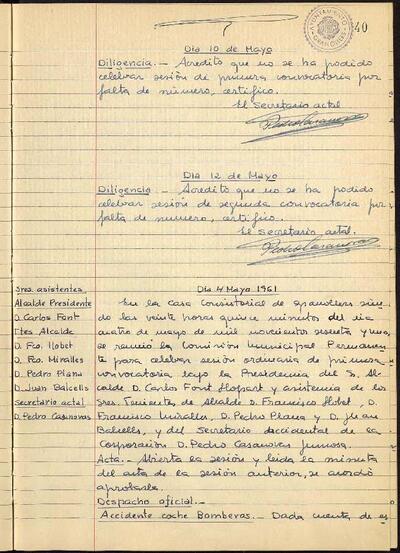 40
AYUNTAMIENTO
GRANOLLERS
Día 10 de Mayo
Diligencia.- Acredito que no se ha podido
celebrar sesión de primera convocatoria por
falta de número, certifico.
El secretario actal
Pedro Casanovas
DIA 12 de Mayo
Diligencia - Acredito que no se ha podido
celebrar sesión de segunda convocatoria por
falta de numero, certifico.
El secretario actal.
Pedro Casanovas
Sres. asistentes
Alcalde Presidente
D. Carlos Font
Ttes. Alcalde
D. Fco. Llobet
D. Fco. Miralles
D. Pedro Plana
D. Juan Balcells
Secretario actal
D. Pedro Casanovas
Día 4 Mayo 1961
En la Casa Consistorial de Granollers sien
do las veinte horas quince minutos del dia
cuatro de mayo de mil novecientos sesenta y uno,
se reunió la Comisión Municipal Permanen
te para celebrar sesión ordinaria de primera
convocatoria bajo la Presidencia del S. Al
calde D. Carlos Font Llopart y asistencia de los
Sres. Tenientes de Alcalde D. Francisco Llobet, D.
Francisco Miralles, D. Pedro Plana y D. Juan
Balcells, y del Secretario accidental de la
Corporación D. Pedro Casanovas
Acta.- Abierta la sesión y leida la minuta
del acta de la sesión anterior, se acordó
aprobarla.
Despacho oficial.-
Accidente coche Bomberos.- Dada cuenta de es